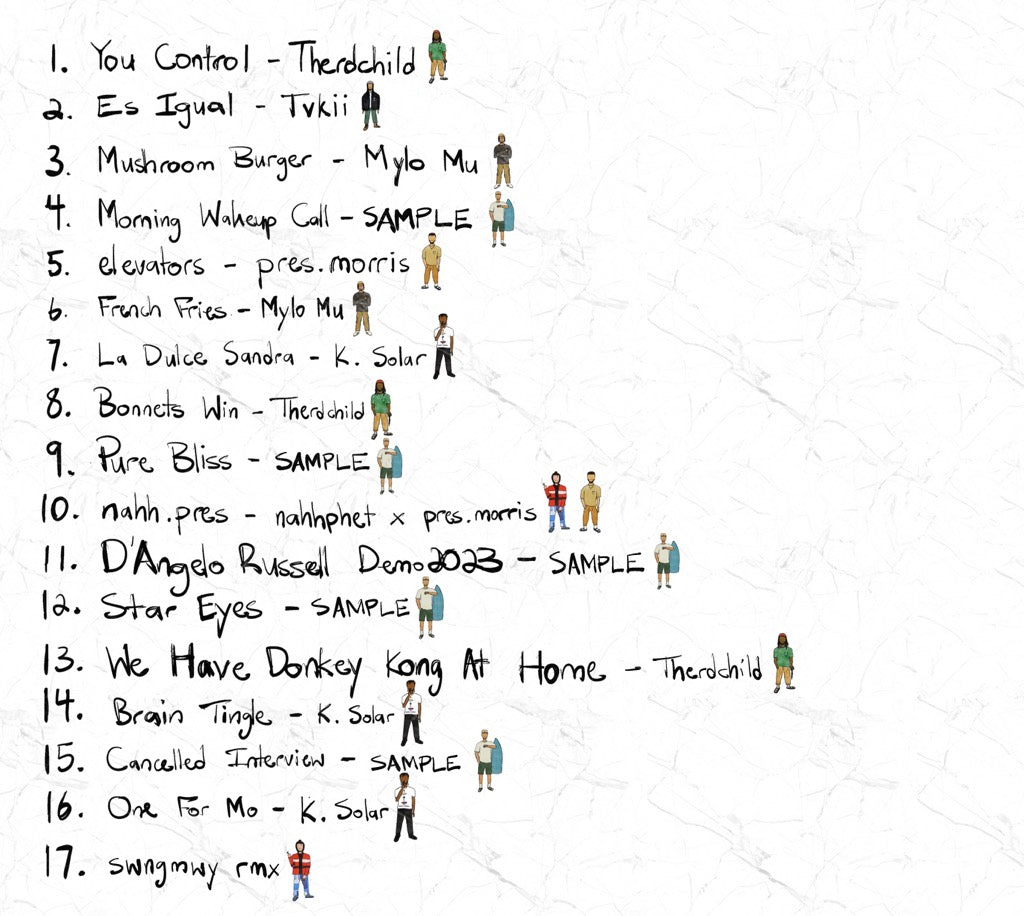 1. You Control - Therdchild
2. Es Igual - Tvkii
3. Mushroom Burger - Mylo Mu
4. Morning Wakeup Call - SAMPLE
5. elevators - pres.morris
6. French Fries - Mylo Mu
7. La Dulce Sandra - K. Solar
8. Bonnets Win - Therdchild
9. Pure Bliss - SAMPLE
10. nahh.pres - nahhphet x pres.morris
11. D'Angelo Russell Demo2023 - SAMPLE
12. Star Eyes - SAMPLE
13. We Have Donkey Kong At Home - Therdchild
14. Brain Tingle - K. Solar
15. Cancelled Interview - SAMPLE
16. One For Mo - K. Solar
17. swngmwy rmx